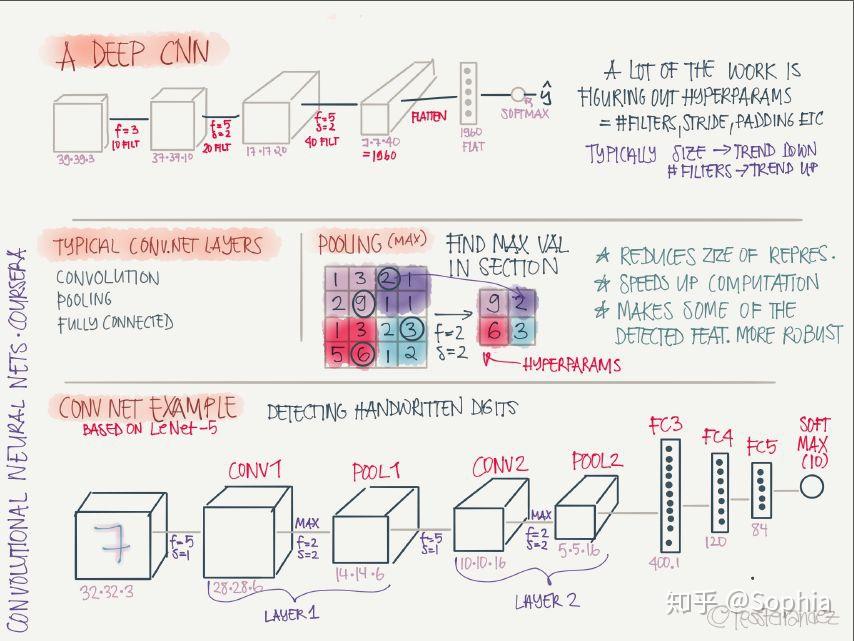 A DEEP CNN
39·39·3
f=3
10 FILT
37·37·10
f=5
s=2
20 FILT
17·17·20
f=5
s=2
40 FILT
7·7·40
=1960
FLATTEN
1960
FLAT
SOFTMAX
ŷ
A LOT OF THE WORK IS
FIGURING OUT HYPERPARAMS
= #FILTERS, STRIDE, PADDING ETC
TYPICALLY SIZE → TREND DOWN
#FILTERS → TREND UP
TYPICAL CONV.NET LAYERS
CONVOLUTION
POOLING
FULLY CONNECTED
POOLING (MAX)
FIND MAX VAL
IN SECTION
1 3 2 1
2 9 1 1
1 3 2 3
5 6 1 2
f=2
s=2
9 2
6 3
HYPERPARAMS
REDUCES SIZE OF REPRES.
SPEEDS UP COMPUTATION
MAKES SOME OF THE
DETECTED FEAT. MORE ROBUST
CONV NET EXAMPLE
BASED ON LeNet-5
DETECTING HANDWRITTEN DIGITS
7
32·32·3
f=5
s=1
CONV1
28·28·6
MAX
f=2
s=2
POOL1
14·14·6
LAYER 1
f=5
s=1
CONV2
10·10·16
MAX
f=2
s=2
POOL2
5·5·16
LAYER 2
FC3
400,1
FC4
120
FC5
84
SOFT
MAX
(10)
CONVOLUTIONAL NEURAL NETS · COURSERA
知乎 @Sophia
©TessFerrandez